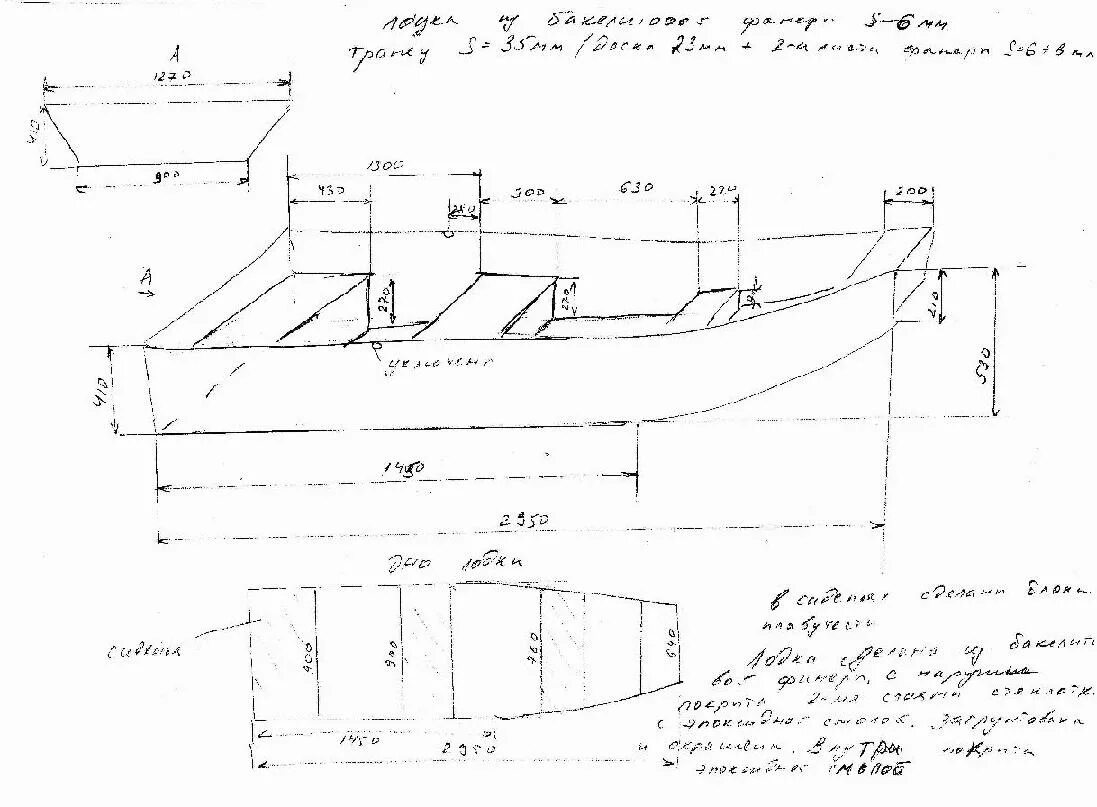 лодка из бакелитовой фанеры S-6мм
транец S=35мм /доска 23мм + 2-а листа фанеры S=6+6 мм
А
1270
410
900
1300
430
250
300
630
270
200
А
270
270
210
530
уключена
410
1450
2950
дно лодки
сиденья
900
900
760
640
1450
2950
в сиденьях сделаны блоки
плавучести
Лодка сделана из бакелито
вой фанеры, с наружи
покрыта 2-мя слоями стеклотк.
с эпоксидной смолой. Загрунтована
и окрашена. Внутри покрыта
эпоксидной смолой